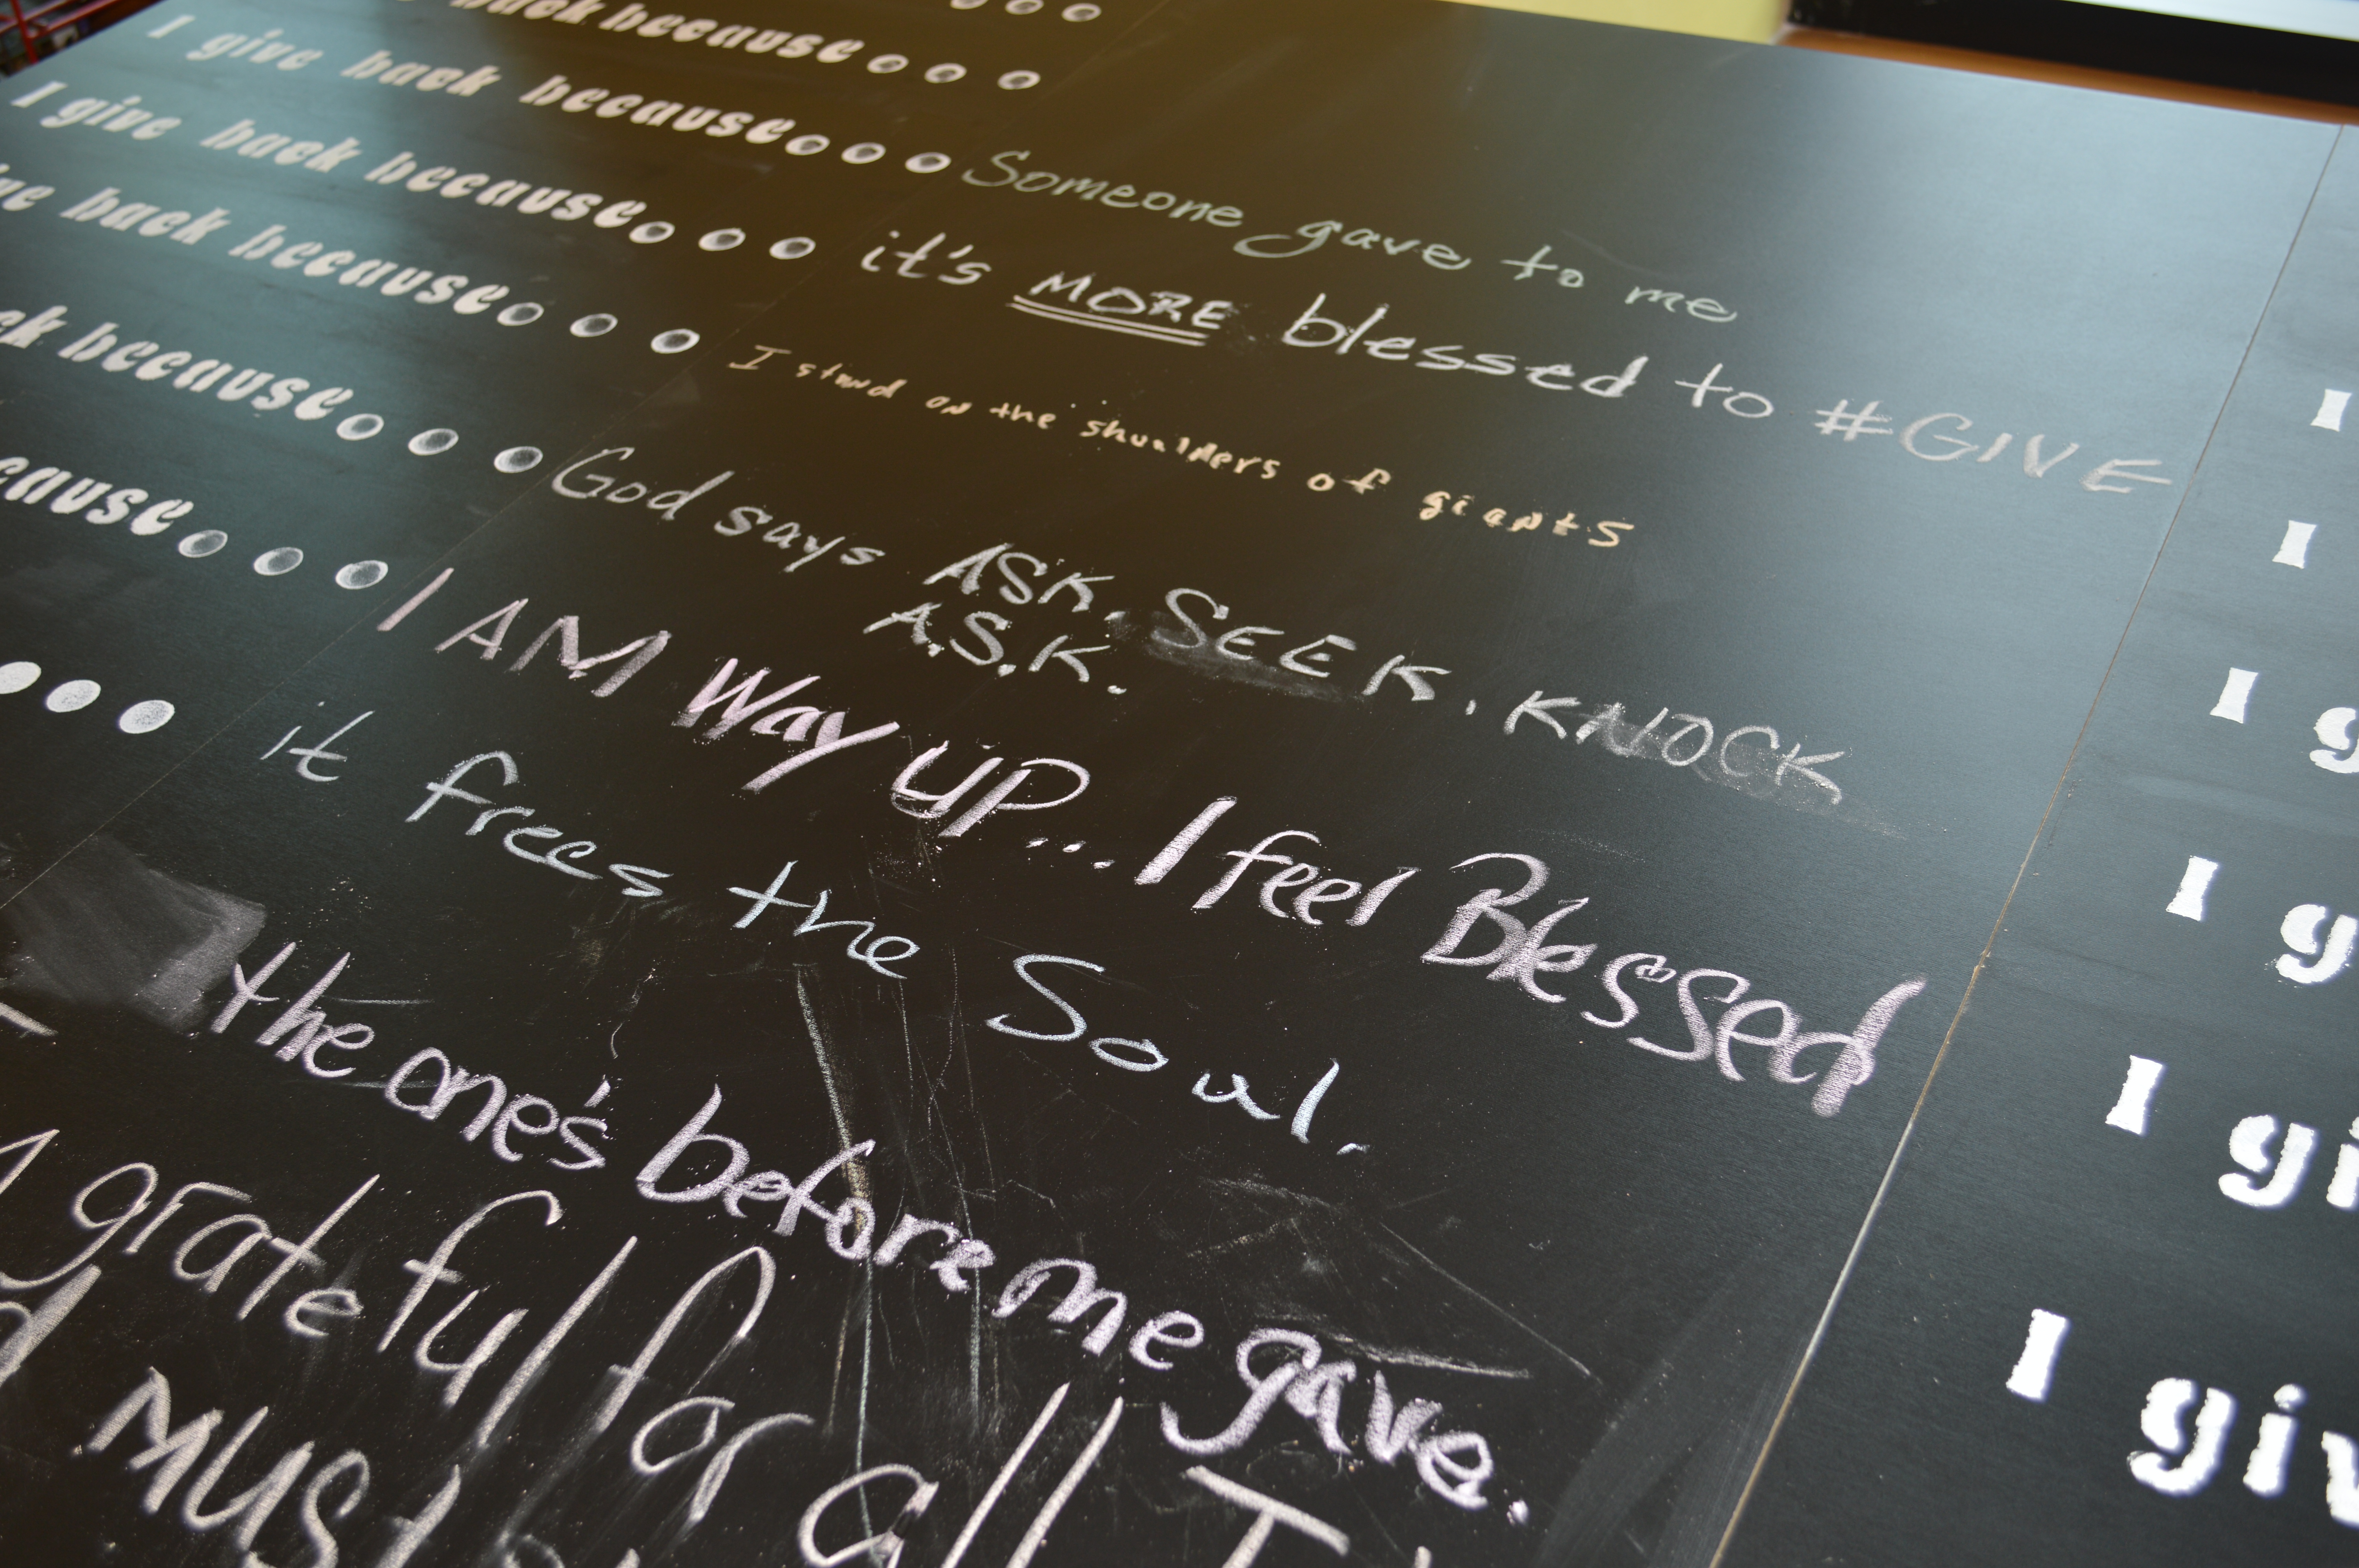 back because...
I give back because... Someone gave to me
I give back because... it's MORE blessed to #GIVE
back because... I stand on the shoulders of giants
because... God says ASK, SEEK, KNOCK
A.S.K.
... I AM Way UP... I feel Blessed
... it frees the Soul.
the one's before me gave.
grateful for all
must
I
I
I g
I g
I gi
I giv